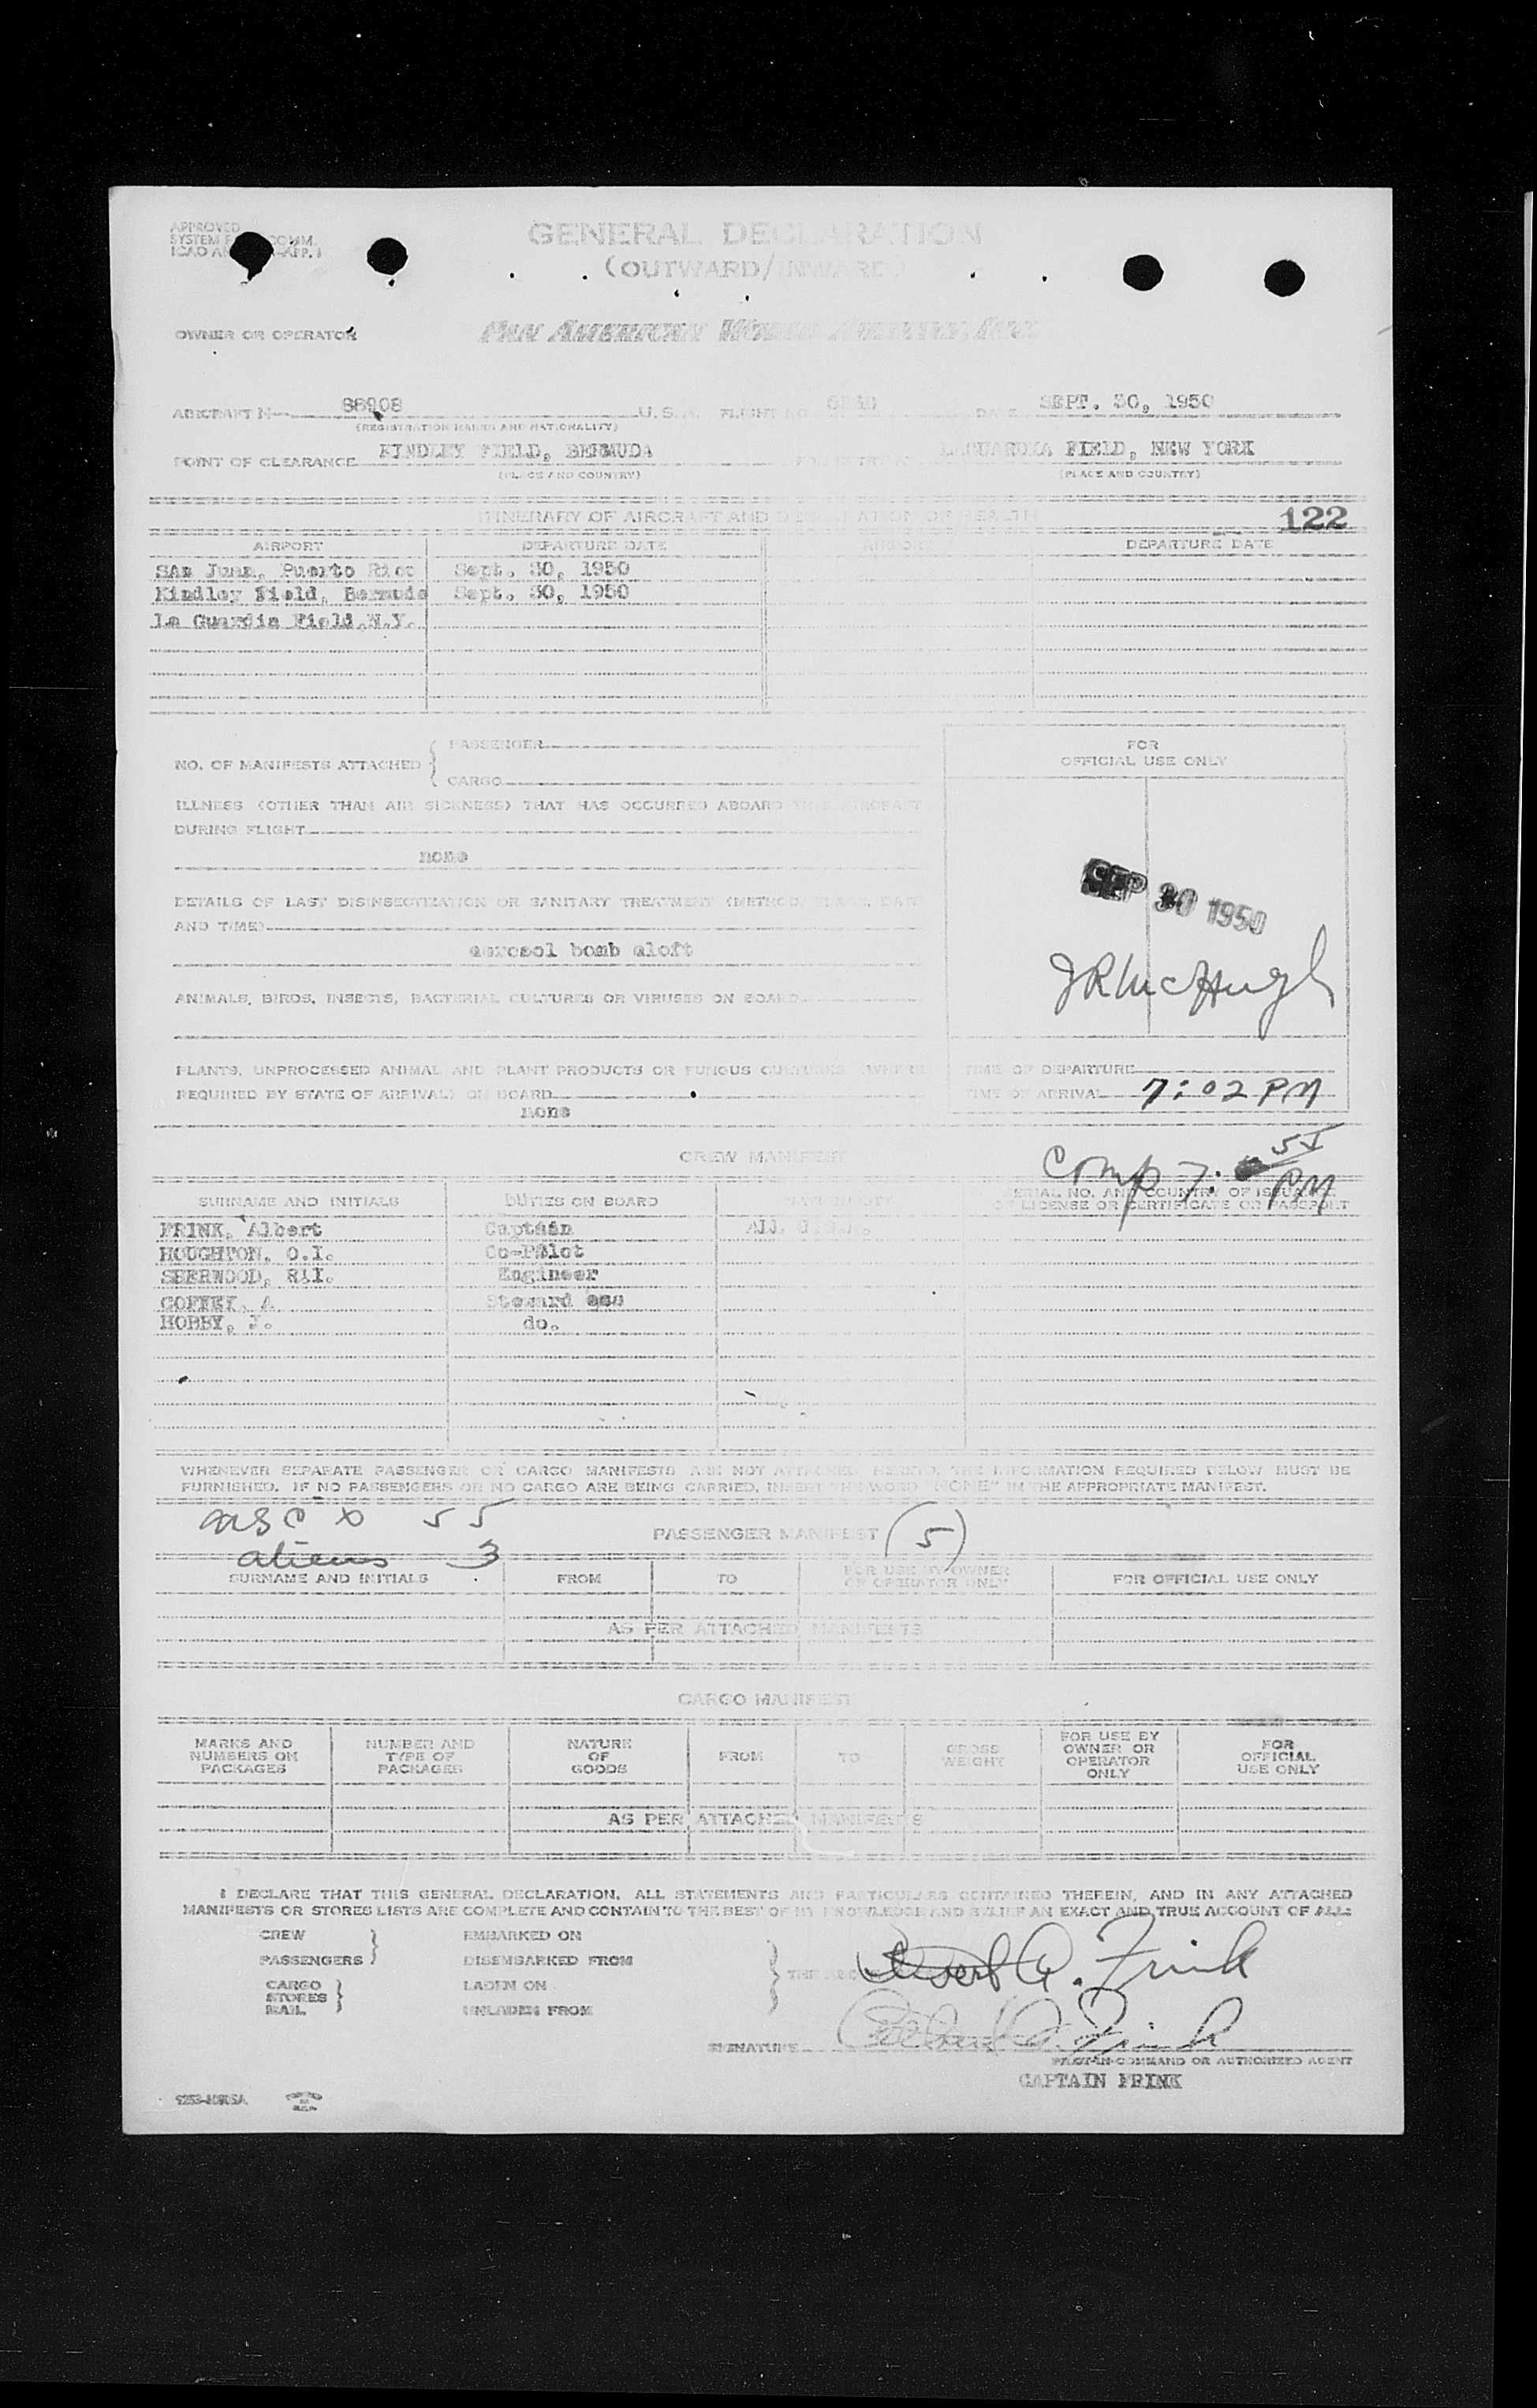 APPROVED
SYSTEM COMM.
ICAO APP. 1
GENERAL DECLARATION
(OUTWARD/INWARD)
OWNER OR OPERATOR PAN AMERICAN WORLD AIRWAYS, INC.
AIRCRAFT N— 88908 U.S.A. FLIGHT NO. DATE SEPT. 30, 1950
(REGISTRATION MARKS AND NATIONALITY)
POINT OF CLEARANCE KINDLEY FIELD, BERMUDA FOR ENTRY AT LAGUARDIA FIELD, NEW YORK
(PLACE AND COUNTRY) (PLACE AND COUNTRY)
ITINERARY OF AIRCRAFT AND DECLARATION OF HEALTH 122
AIRPORT DEPARTURE DATE AIRPORT DEPARTURE DATE
SAn Juan, Puerto Rico Sept. 30, 1950
Kindley Field, Bermuda Sept. 30, 1950
La Guardia Field,N.Y.
NO. OF MANIFESTS ATTACHED { PASSENGER
CARGO
FOR
OFFICIAL USE ONLY
ILLNESS (OTHER THAN AIR SICKNESS) THAT HAS OCCURRED ABOARD THIS AIRCRAFT
DURING FLIGHT
none
SEP 30 1950
DETAILS OF LAST DISINSECTIZATION OR SANITARY TREATMENT (METHOD, PLACE, DATE
AND TIME)
aerosol bomb aloft
JRMcHugh
ANIMALS, BIRDS, INSECTS, BACTERIAL CULTURES OR VIRUSES ON BOARD
PLANTS, UNPROCESSED ANIMAL AND PLANT PRODUCTS OR FUNGUS CULTURES (WHERE
REQUIRED BY STATE OF ARRIVAL) ON BOARD
none
TIME OF DEPARTURE
TIME OF ARRIVAL 7:02 PM
CREW MANIFEST
Comp 7: 55 PM
SURNAME AND INITIALS DUTIES ON BOARD SERIAL NO. AND COUNTRY OF ISSUANCE
OF LICENSE OR CERTIFICATE OR PASSPORT
FRINK, Albert Captain All U.S.A.
HOUGHTON, O.I. Co-Pilot
SHERWOOD, R.I. Engineer
COFFEY, A Steward
HOBBY, J. do.
WHENEVER SEPARATE PASSENGER OR CARGO MANIFESTS ARE NOT ATTACHED HERETO, THE INFORMATION REQUIRED BELOW MUST BE
FURNISHED. IF NO PASSENGERS OR NO CARGO ARE BEING CARRIED, INSERT THE WORD "NONE" IN THE APPROPRIATE MANIFEST.
55
PASSENGER MANIFEST (5)
aliens 3
SURNAME AND INITIALS FROM TO FOR USE BY OWNER
OR OPERATOR ONLY FOR OFFICIAL USE ONLY
AS PER ATTACHED MANIFESTS
CARGO MANIFEST
MARKS AND
NUMBERS ON
PACKAGES
NUMBER AND
TYPE OF
PACKAGES
NATURE
OF
GOODS
FROM
TO
GROSS
WEIGHT
FOR USE BY
OWNER OR
OPERATOR
ONLY
FOR
OFFICIAL
USE ONLY
AS PER ATTACHED MANIFESTS
I DECLARE THAT THIS GENERAL DECLARATION, ALL STATEMENTS AND PARTICULARS CONTAINED THEREIN, AND IN ANY ATTACHED
MANIFESTS OR STORES LISTS ARE COMPLETE AND CONTAIN TO THE BEST OF MY KNOWLEDGE AND BELIEF AN EXACT AND TRUE ACCOUNT OF ALL:
CREW EMBARKED ON
PASSENGERS } DISEMBARKED FROM
CARGO LADEN ON
STORES }
MAIL UNLADEN FROM
Albert A. Frink
SIGNATURE Albert A. Frink
PILOT-IN-COMMAND OR AUTHORIZED AGENT
CAPTAIN FRINK